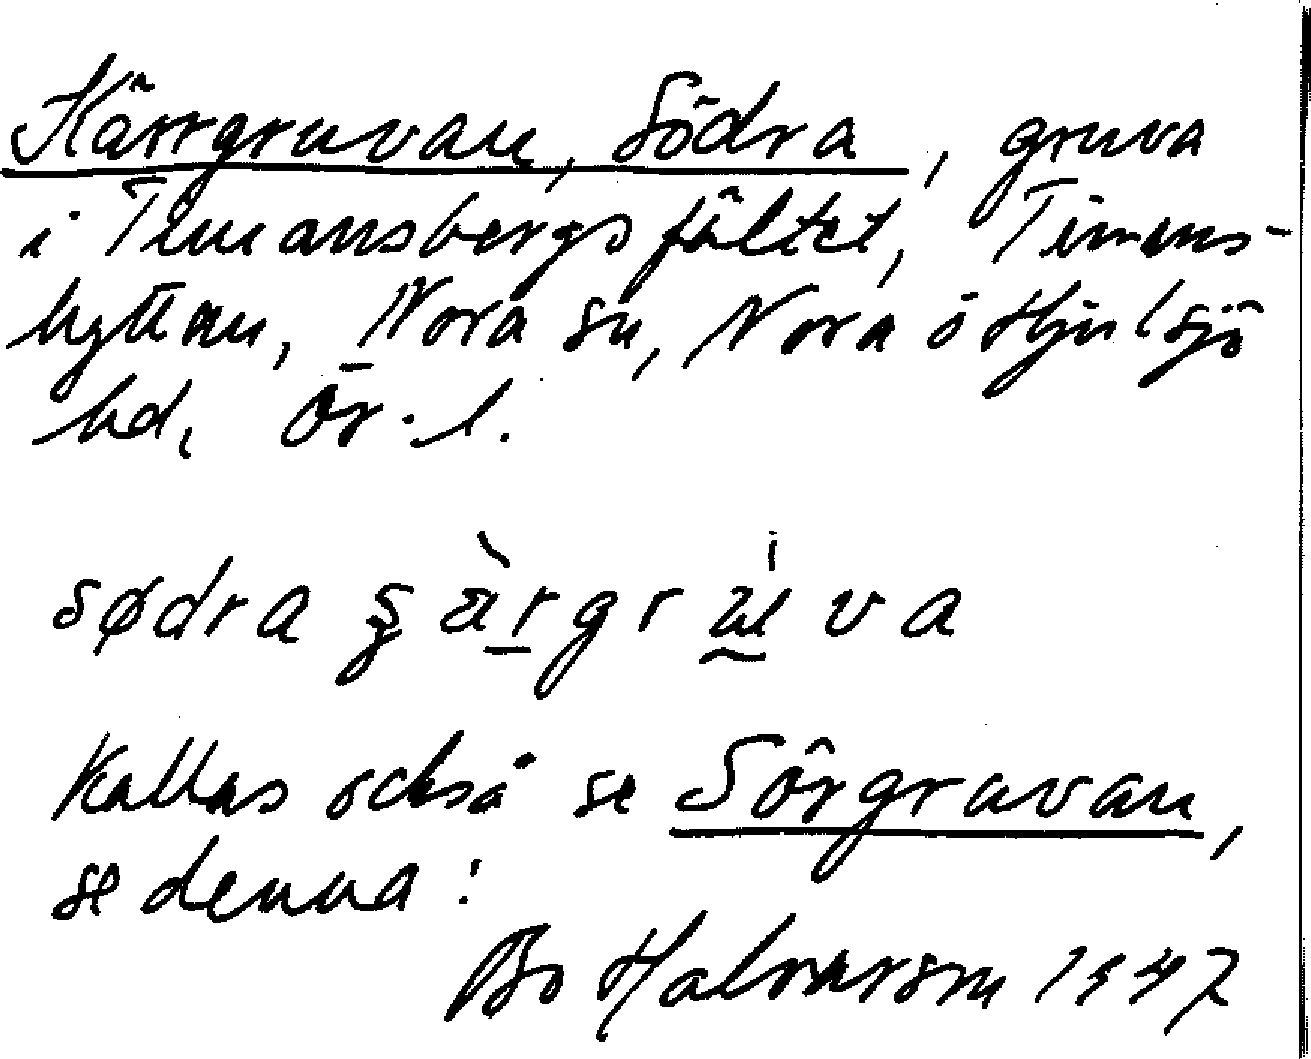 Kärrgruvan, Södra, gruva
i Timansbergsfältet, Timans-
hyttan, Nora sn, Nora o Hjulsjö
bd, Ör. l.
södra
Kallas också se Sörgruvan,
se denna!
Bo Halvarson 1947